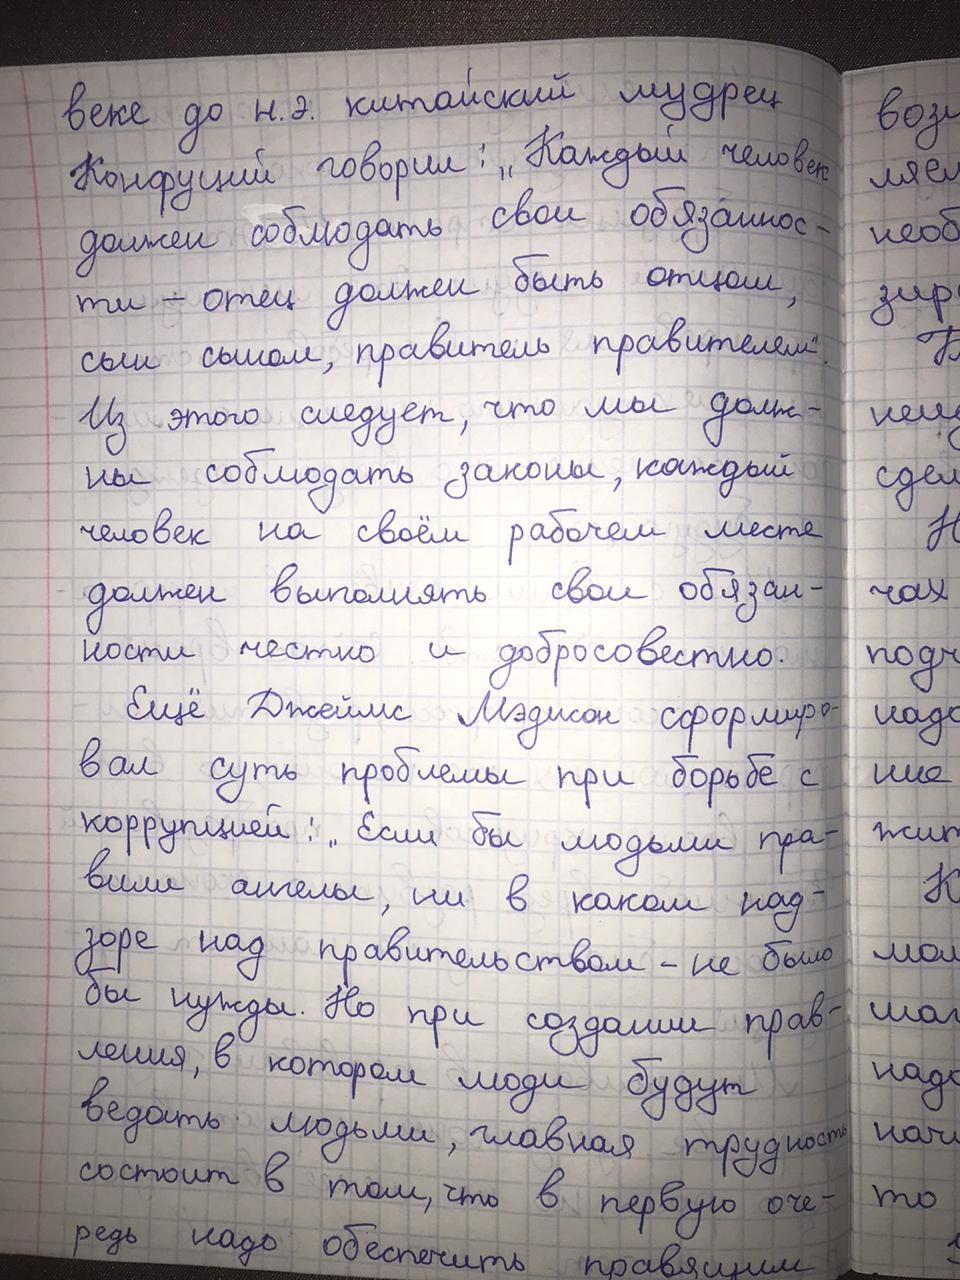 веке до н.э. китайский мудрец
Конфуций говорил: „Каждый человек
должен соблюдать свои обязаннос-
ти - отец должен быть отцом,
сын сыном, правитель правителем".
Из этого следует, что мы долж-
ны соблюдать законы, каждый
человек на своём рабочем месте
должен выполнять свои обязан-
ности честно и добросовестно.
Ещё Джеймс Мэдисон сформиро-
вал суть проблемы при борьбе с
коррупцией: „Если бы людьми пра-
вили ангелы, ни в каком над-
зоре над правительством - не было
бы нужды. Но при создании прав-
ления, в котором люди будут
ведать людьми, главная трудность
состоит в том, что в первую оче-
редь надо обеспечить правящим
возм
ляем
необ
зир
нец
сдел
чах
подч
надо
ние
жит
К
мол
шаг
надо
начи
то